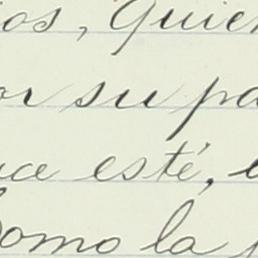 os, Quien
or su pa
ue esté, e
Como la